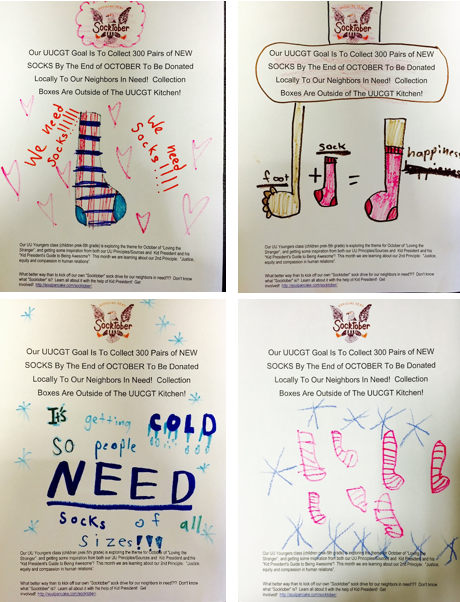 Socktober
Our UUCGT Goal Is To Collect 300 Pairs of NEW
SOCKS By The End of OCTOBER To Be Donated
Locally To Our Neighbors In Need! Collection
Boxes Are Outside of The UUCGT Kitchen!
We need
Socks!!!!!!
We need
Socks!!!!!
Our UU Youngers class (children prek-5th grade) is exploring the theme for October of "Loving the
Stranger", and getting some inspiration from both our UU Principles/Sources and Kid President and his
"Kid President's Guide to Being Awesome"! This month we are learning about our 2nd Principle: "Justice,
equity and compassion in human relations"
What better way than to kick off our own "Socktober" sock drive for our neighbors in need!?! Don't know
what "Socktober" is? Learn all about it with the help of Kid President! Get
involved! http://soulpancake.com/socktober/
Socktober
Our UUCGT Goal Is To Collect 300 Pairs of NEW
SOCKS By The End of OCTOBER To Be Donated
Locally To Our Neighbors In Need! Collection
Boxes Are Outside of The UUCGT Kitchen!
foot + sock = happiness
Our UU Youngers class (children prek-5th grade) is exploring the theme for October of "Loving the
Stranger", and getting some inspiration from both our UU Principles/Sources and Kid President and his
"Kid President's Guide to Being Awesome"! This month we are learning about our 2nd Principle: "Justice,
equity and compassion in human relations"
What better way than to kick off our own "Socktober" sock drive for our neighbors in need!?! Don't know
what "Socktober" is? Learn all about it with the help of Kid President! Get
involved! http://soulpancake.com/socktober/
Socktober
Our UUCGT Goal Is To Collect 300 Pairs of NEW
SOCKS By The End of OCTOBER To Be Donated
Locally To Our Neighbors In Need! Collection
Boxes Are Outside of The UUCGT Kitchen!
It's getting COLD
SO people
NEED
Socks of all
sizes!!!
Our UU Youngers class (children prek-5th grade) is exploring the theme for October of "Loving the
Stranger", and getting some inspiration from both our UU Principles/Sources and Kid President and his
"Kid President's Guide to Being Awesome"! This month we are learning about our 2nd Principle: "Justice,
equity and compassion in human relations"
What better way than to kick off our own "Socktober" sock drive for our neighbors in need!?! Don't know
what "Socktober" is? Learn all about it with the help of Kid President! Get
involved! http://soulpancake.com/socktober/
Socktober
Our UUCGT Goal Is To Collect 300 Pairs of NEW
SOCKS By The End of OCTOBER To Be Donated
Locally To Our Neighbors In Need! Collection
Boxes Are Outside of The UUCGT Kitchen!
Our UU Youngers class (children prek-5th grade) is exploring the theme for October of "Loving the
Stranger", and getting some inspiration from both our UU Principles/Sources and Kid President and his
"Kid President's Guide to Being Awesome"! This month we are learning about our 2nd Principle: "Justice,
equity and compassion in human relations"
What better way than to kick off our own "Socktober" sock drive for our neighbors in need!?! Don't know
what "Socktober" is? Learn all about it with the help of Kid President! Get
involved! http://soulpancake.com/socktober/